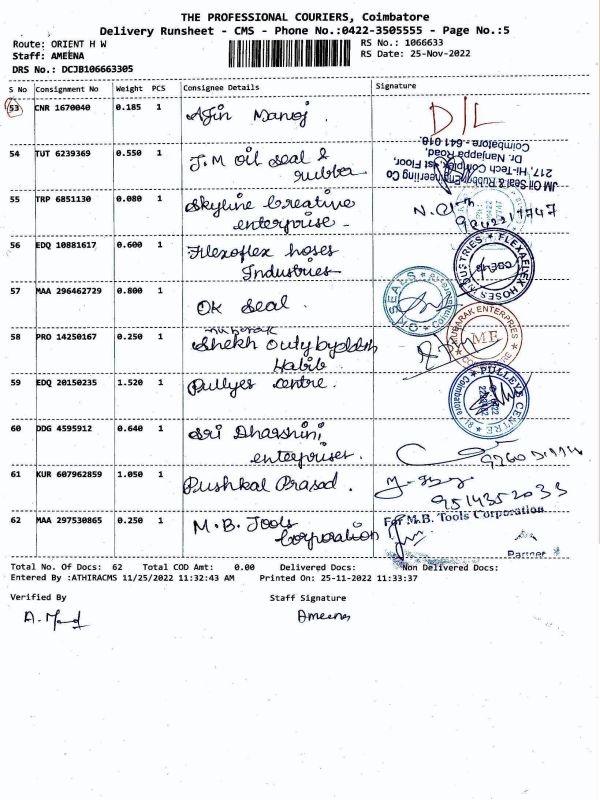 THE PROFESSIONAL COURIERS, Coimbatore
Delivery Runsheet - CMS - Phone No.:0422-3505555 - Page No.:5
Route: ORIENT H W
RS No.: 1066633
Staff: AMEENA
RS Date: 25-Nov-2022
DRS No.: DCJB106663305
S No Consignment No Weight PCS Consignee Details Signature
53 CNR 1670040 0.185 1 Ajin Manoj D/L
54 TUT 6239369 0.550 1 J.M oil seal &
rubber
JM Oil Seal & Rubber Engineering Co
217, Hi-Tech Complex, 1st Floor,
Dr. Nanjappa Road,
Coimbatore - 641 018.
55 TRP 6851130 0.080 1 Skyline Creative
enterprise -
56 EDQ 10881617 0.600 1 Flexoflex hoses
Industries
FLEXAFLEX HOSES INDUSTRIES
57 MAA 296462729 0.800 1 OK Seal.
OK SEALS
58 PRO 14250167 0.250 1 mubarak
Shekh
Habib
MUBARAK ENTERPRES
ME
59 EDQ 20150235 1.520 1 Pullyes centre.
PULLEYS CENTRE
60 DDG 4595912 0.640 1 Sri Dharshini
enterprises.
61 KUR 607962859 1.050 1 Pushkal Prasad.
9514352033
62 MAA 297530865 0.250 1 M.B. Tools
Corporation
For M.B. Tools Corporation
Partner
Total No. Of Docs: 62 Total COD Amt: 0.00 Delivered Docs: Non Delivered Docs:
Entered By :ATHIRACMS 11/25/2022 11:32:43 AM Printed On: 25-11-2022 11:33:37
Verified By Staff Signature
Ameena